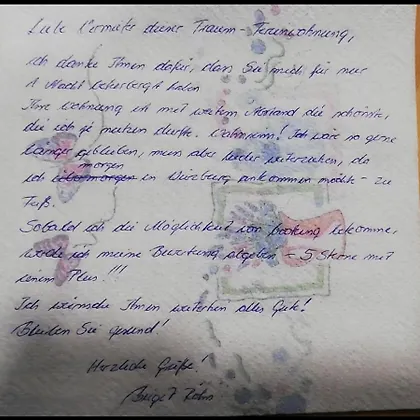 Liebe Vermieter dieser Traum-Ferienwohnung,
ich danke Ihnen dafür, dass Sie mich für nur
1 Nacht beherbergt haben
Ihre Wohnung ist mit weitem Abstand die schönste,
die ich je nutzen durfte. Wahnsinn! Ich wäre so gerne
länger geblieben, muss aber leider weiterziehen, da
morgen
ich übermorgen in Würzburg ankommen möchte - zu
Fuß.
Sobald ich die Möglichkeit von booking bekomme,
werde ich meine Bewertung abgeben - 5 Sterne mit
einem Plus!!!
Ich wünsche Ihnen weiterhin alles Gute!
Bleiben Sie gesund!
Herzliche Grüße!
Birgit